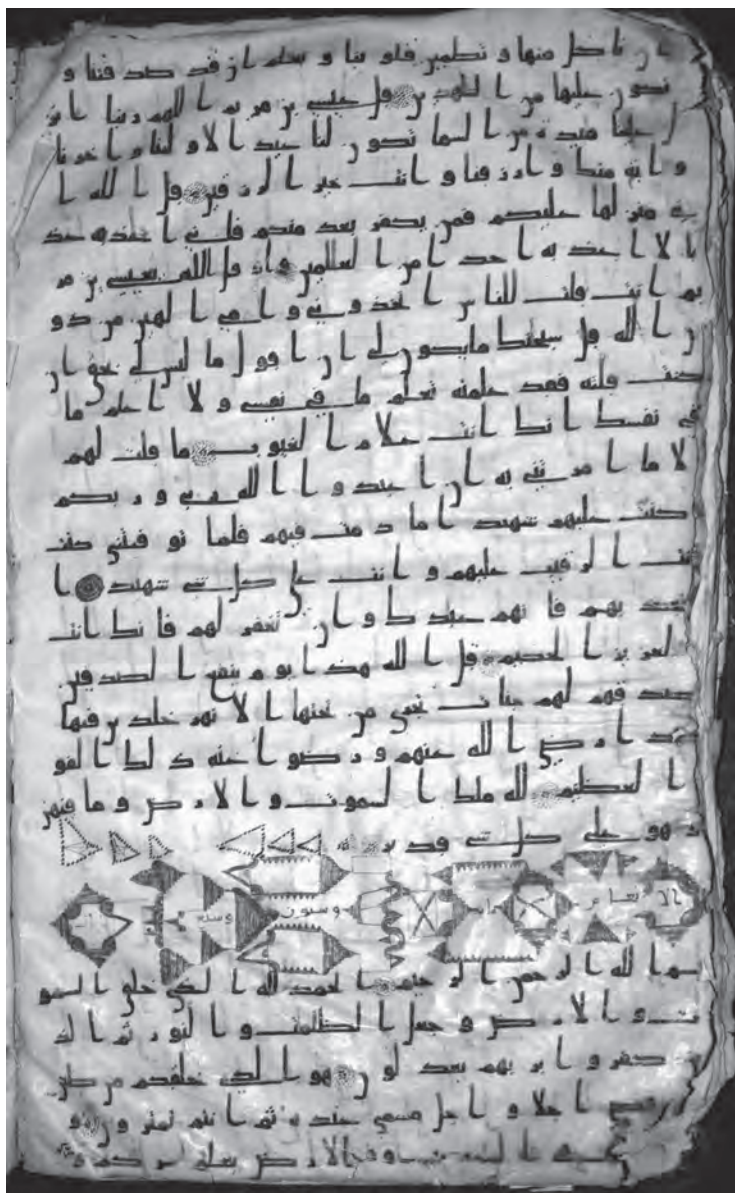 ان ناكل منها و تطمين قلوبنا و نعلم ان قد صدقتنا و
نكون عليها من الشهدين قل عيسى بن مريم اللهم ربنا انز
ل علينا مئدة من السما تكون لنا عيدا لاولنا و اخرنا
و اية منك و ارزقنا و انت خير الرزقين قل الله ا
ني منزلها عليكم فمن يكفر بعد منكم فاني اعذبه عذ
ابا لا اعذبه احدا من العلمين واذ قل الله يعيسى بن مر
يم انت قلت للناس اتخذوني و امي الهين من دو
ن الله قل سبحنك ما يكون لي ان اقول ما ليس لي بحق ان
كنت قلته فقد علمته تعلم ما في نفسي و لا اعلم ما
في نفسك انك انت علام الغيوب ما قلت لهم
الا ما امرتني به ان اعبدوا الله ربي و ربكم
كنت عليهم شهيدا ما دمت فيهم فلما توفيتني كنت
انت الرقيب عليهم و انت على كل شي شهيد ا
تعذبهم فانهم عبدك و ان تغفر لهم فانك انت
العزيز الحكيم قل الله هذا يوم ينفع الصدقين
صدقهم لهم جنات تجري من تحتها الانهر خلدين فيها
ابدا رضي الله عنهم و رضوا عنه ذلك الفو
ز العظيم لله ملك السموت و الارض و ما فيهن
و هو على كل شي قدير
الانعام وستون وسبع
بسم الله الرحمن الرحيم الحمد لله الذي خلق السمو
ت و الارض و جعل الظلمت و النور ثم الذ
ين كفروا بربهم يعدلون هو الذي خلقكم من طين
قضى اجلا و اجل مسمى عنده ثم انتم تمترون و
السموت و في الارض يعلم سركم و